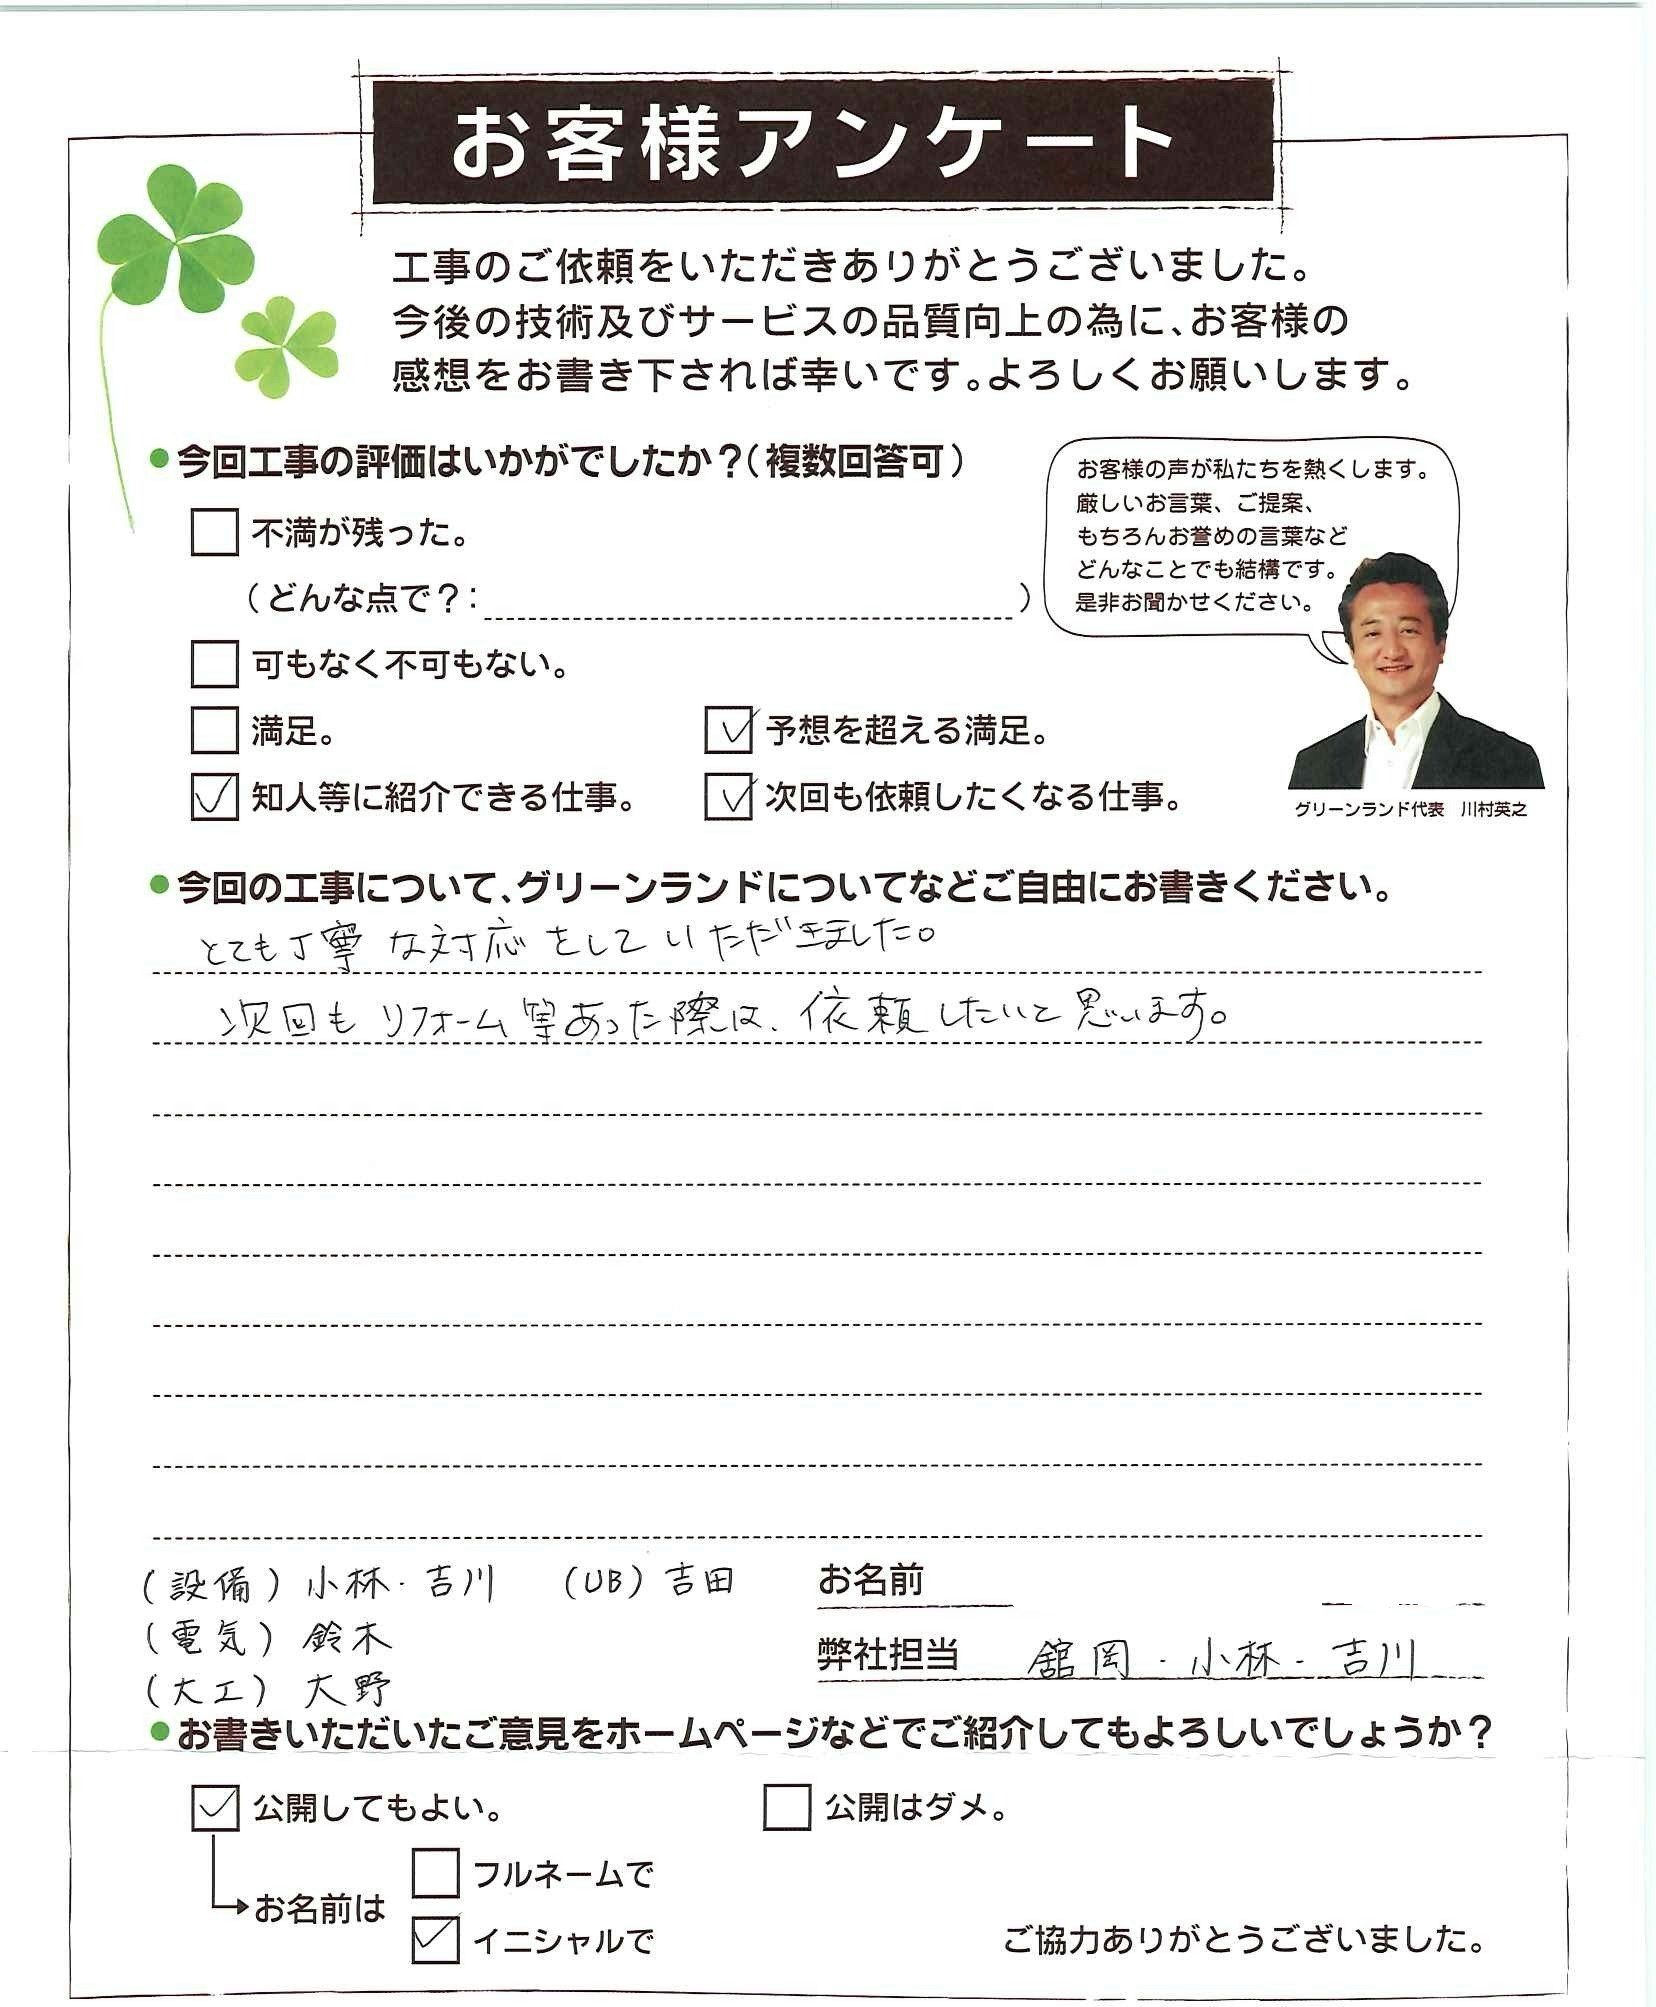 お客様アンケート
工事のご依頼をいただきありがとうございました。
今後の技術及びサービスの品質向上の為に、お客様の
感想をお書き下されば幸いです。よろしくお願いします。
●今回工事の評価はいかがでしたか？（複数回答可）
お客様の声が私たちを熱くします。
厳しいお言葉、ご提案、
もちろんお誉めの言葉など
どんなことでも結構です。
是非お聞かせください。
不満が残った。
（どんな点で？：　　　）
可もなく不可もない。
満足。
✓ 予想を超える満足。
✓ 知人等に紹介できる仕事。
✓ 次回も依頼したくなる仕事。
グリーンランド代表　川村英之
●今回の工事について、グリーンランドについてなどご自由にお書きください。
とても丁寧な対応をしていただきました。
次回もリフォーム等あった際は、依頼したいと思います。
（設備）小林・吉川　（UB）吉田
お名前
（電気）鈴木
弊社担当　舘岡・小林・吉川
（大工）大野
●お書きいただいたご意見をホームページなどでご紹介してもよろしいでしょうか？
✓ 公開してもよい。
公開はダメ。
お名前は
フルネームで
✓ イニシャルで
ご協力ありがとうございました。